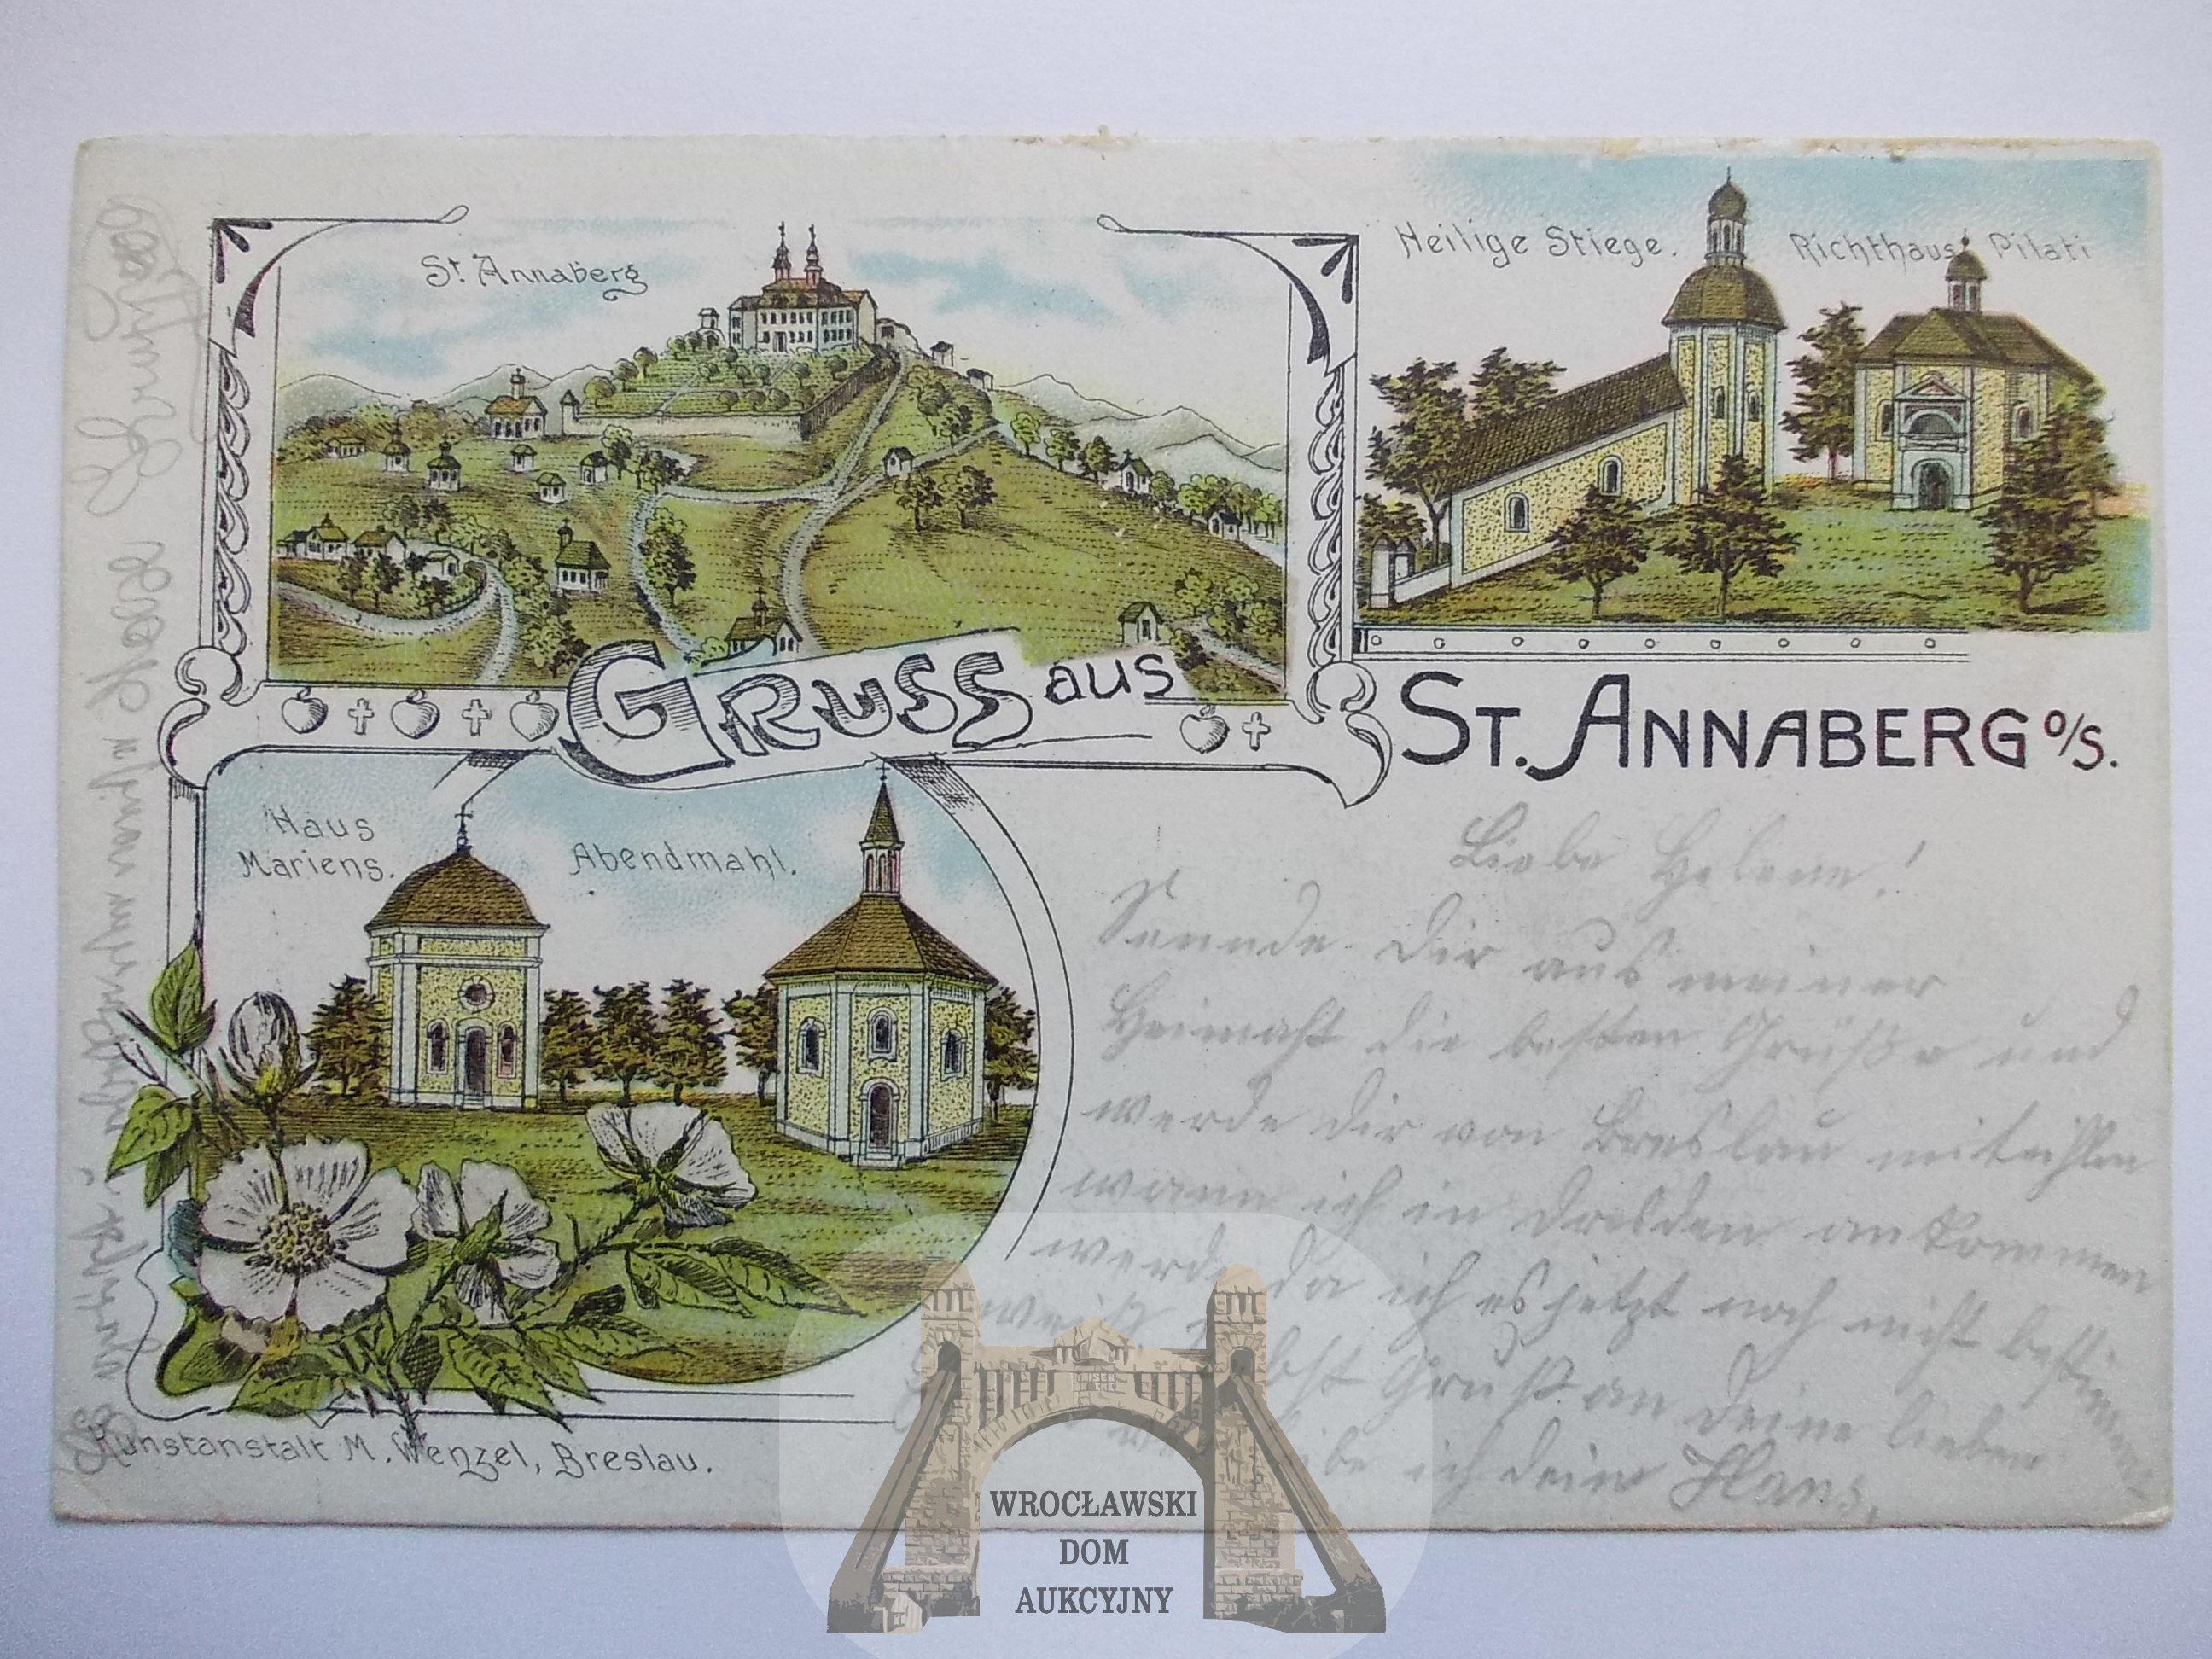 St. Annaberg
Heilige Stiege.
Richthaus Pilati
Gruss aus
St. Annaberg O/S.
Haus
Mariens.
Abendmahl.
Liebe Helene!
Sennde Dir aus meiner
Heimaht die besten Grüße und
werde dir von Breslau miteihlen
wann ich in Dresden ankommen
werde da ich es jetzt noch nicht bestimmt
weiß Gruß an Deine lieben
ich dein Hans.
Kunstanstalt M. Wenzel, Breslau.
WROCŁAWSKI
DOM
AUKCYJNY